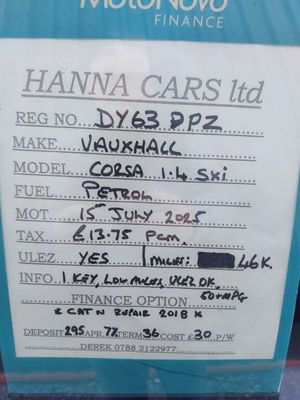 MotoNovo
FINANCE
HANNA CARS ltd
REG NO. DY63 DPZ
MAKE VAUXHALL
MODEL CORSA 1.4 SXi
FUEL PETROL
MOT 15th JULY 2025
TAX £13.75 pcm.
ULEZ YES MILES: 46K.
INFO. 1 KEY, LOW MILES, ULEZ OK.
FINANCE OPTION 50+MPG
* CAT N REPAIR 2018 *
DEPOSIT 295 APR. 72 TERM 36 COST £ 30 P/W
DEREK 0788 2122977